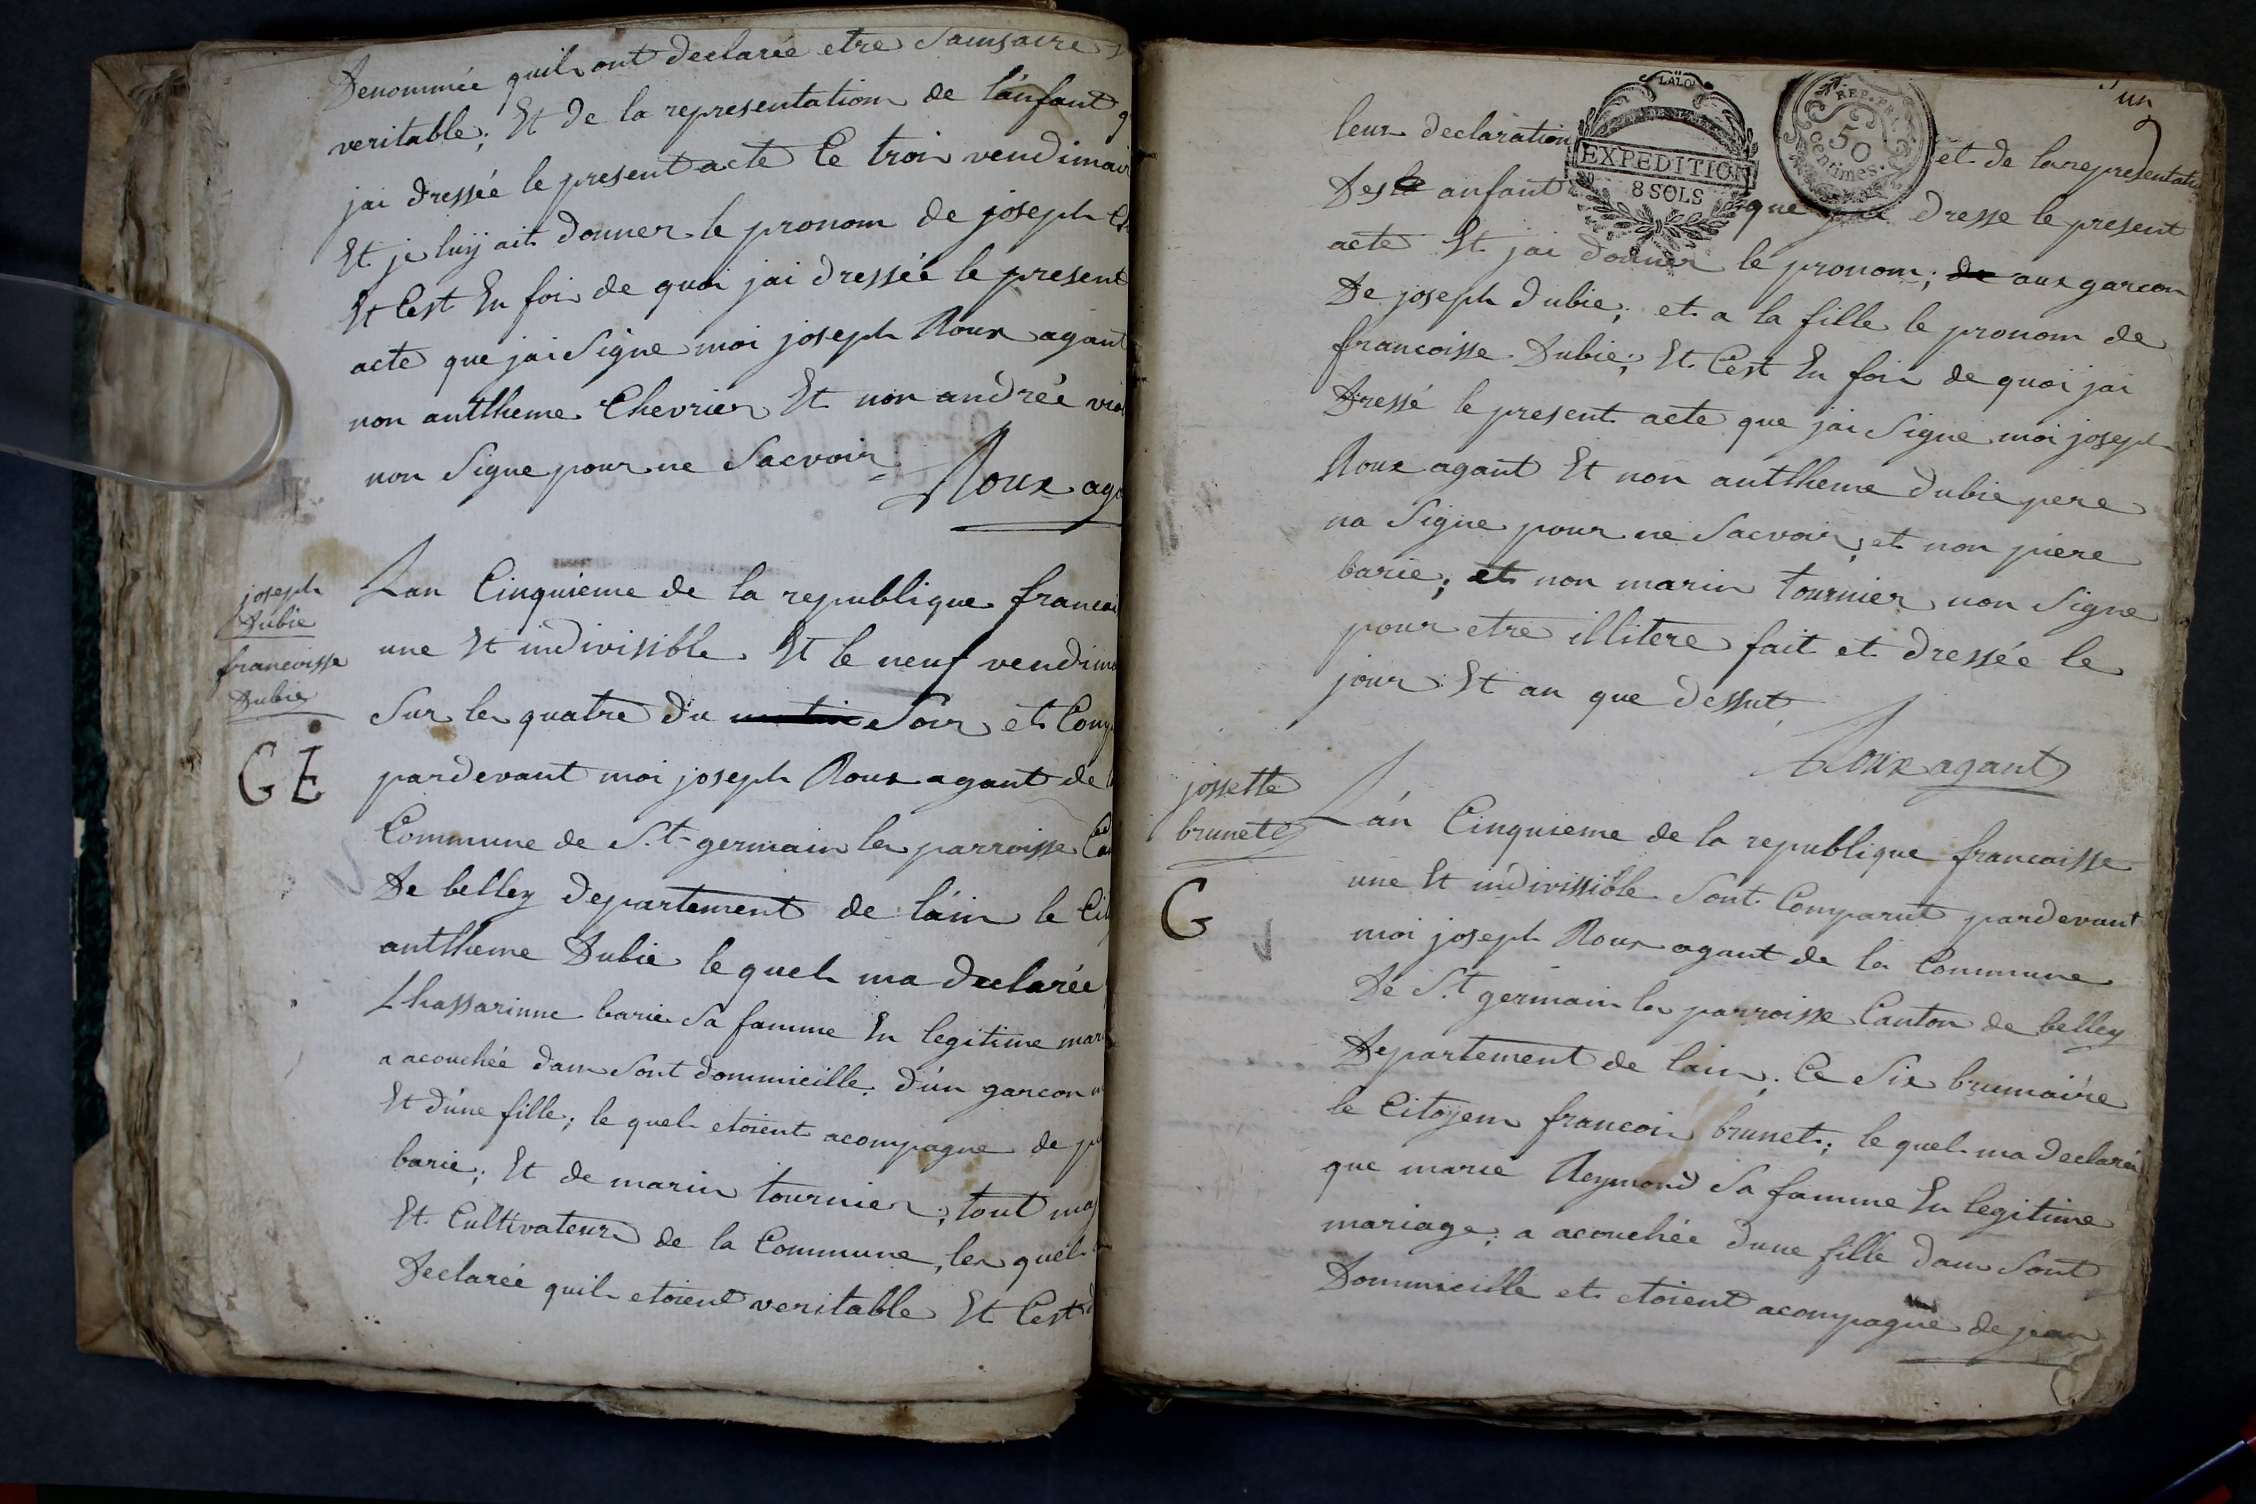 Denommée quils ont declarée etre
veritable; Et de la representation de lánfant
jai dressée le present acte Ce trois vendimair
Et je luy ait donner le pronom de joseph
Et Cest En foi de quoi jai dressée le present
acte que jai Signe moi joseph Roux agant
non anttheme Chevrier Et non andrée
non Signe pour ne Sacvoir
Roux aga
joseph
Dubie
francoisse
Dubie
G E
Lan Cinquieme de la republique francai
une Et indivisible Et le neuf vendim
Sur les quatre du matin Soir et Comp
pardevant moi joseph Roux agant de
Commune de S.t germain les parroisse Ca
De belley departement de láin le Cit
anttheme Dubie le quel ma declarée
Lhassarinne barie Sa famme En legitime mar
a acouchée dans Sont dommicille d'ún garcon
Et dúne fille; le quel etoient acompagne de
barie; Et de marin tournier; tout maj
Et Cultivateur de la Commune, les quel
Declarée quil etoient veritable Et Cest
un
LALOI
EXPEDITION
8 SOLS
REP. FRA.
50
Centimes.
leur declaration et de la representati
Des le anfant que jai dresse le present
acte Et jai donner le pronom; de aux garcon
De joseph dubie; et a la fille le pronom de
francoisse Dubie; Et Cest En foi de quoi jai
Dressé le present acte que jai Signe moi joseph
Roux agant Et non anttheme dubie pere
na Signe pour ne Sacvoir et non piere
barie; et non marin tournier non Signe
pour etre illitere fait et dressée le
jour Et an que dessut
Roux agant
jossette
brunet
G
Lán Cinquieme de la republique francaisse
une Et indivissible Sont Comparut pardevant
moi joseph Roux agant de la Commune
De S.t germain les parroisse Canton de belley
Departement de lain; Ce Six brumaire
le Citoyem francois brunet; le quel ma declarée
que marie Reymond Sa famme En legitime
mariage; a acouchée dune fille dans Sont
Dommicille et etoient acompagne de jean